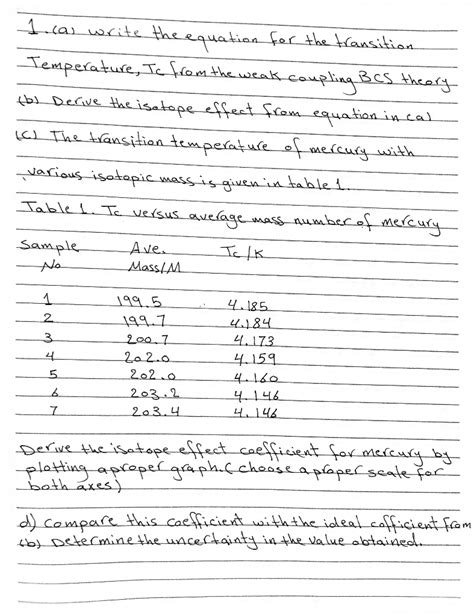 1. (a) write the equation for the transition
Temperature, Tc from the weak coupling BCS theory
(b) Derive the isotope effect from equation in (a)
(c) The transition temperature of mercury with
various isotopic mass is given in table 1.
Table 1. Tc versus average mass number of mercury
Sample Ave. Tc/K
No Mass/M
1 199.5 4.185
2 199.7 4.184
3 200.7 4.173
4 202.0 4.159
5 202.0 4.160
6 203.2 4.146
7 203.4 4.146
Derive the isotope effect coefficient for mercury by
plotting a proper graph. (choose a proper scale for
both axes)
d) compare this coefficient with the ideal cofficient from
(b) Determine the uncertainty in the value obtained.